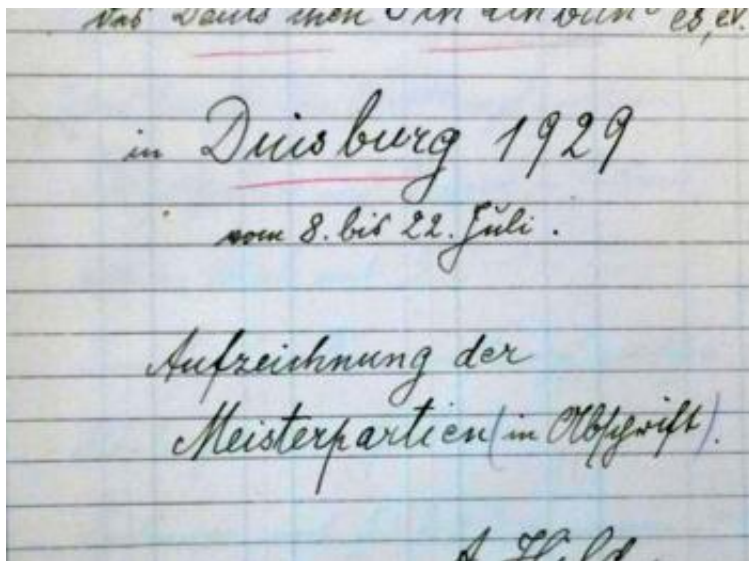 in Duisburg 1929
vom 8. bis 22. Juli.
Aufzeichnung der
Meisterpartien (in Abschrift).